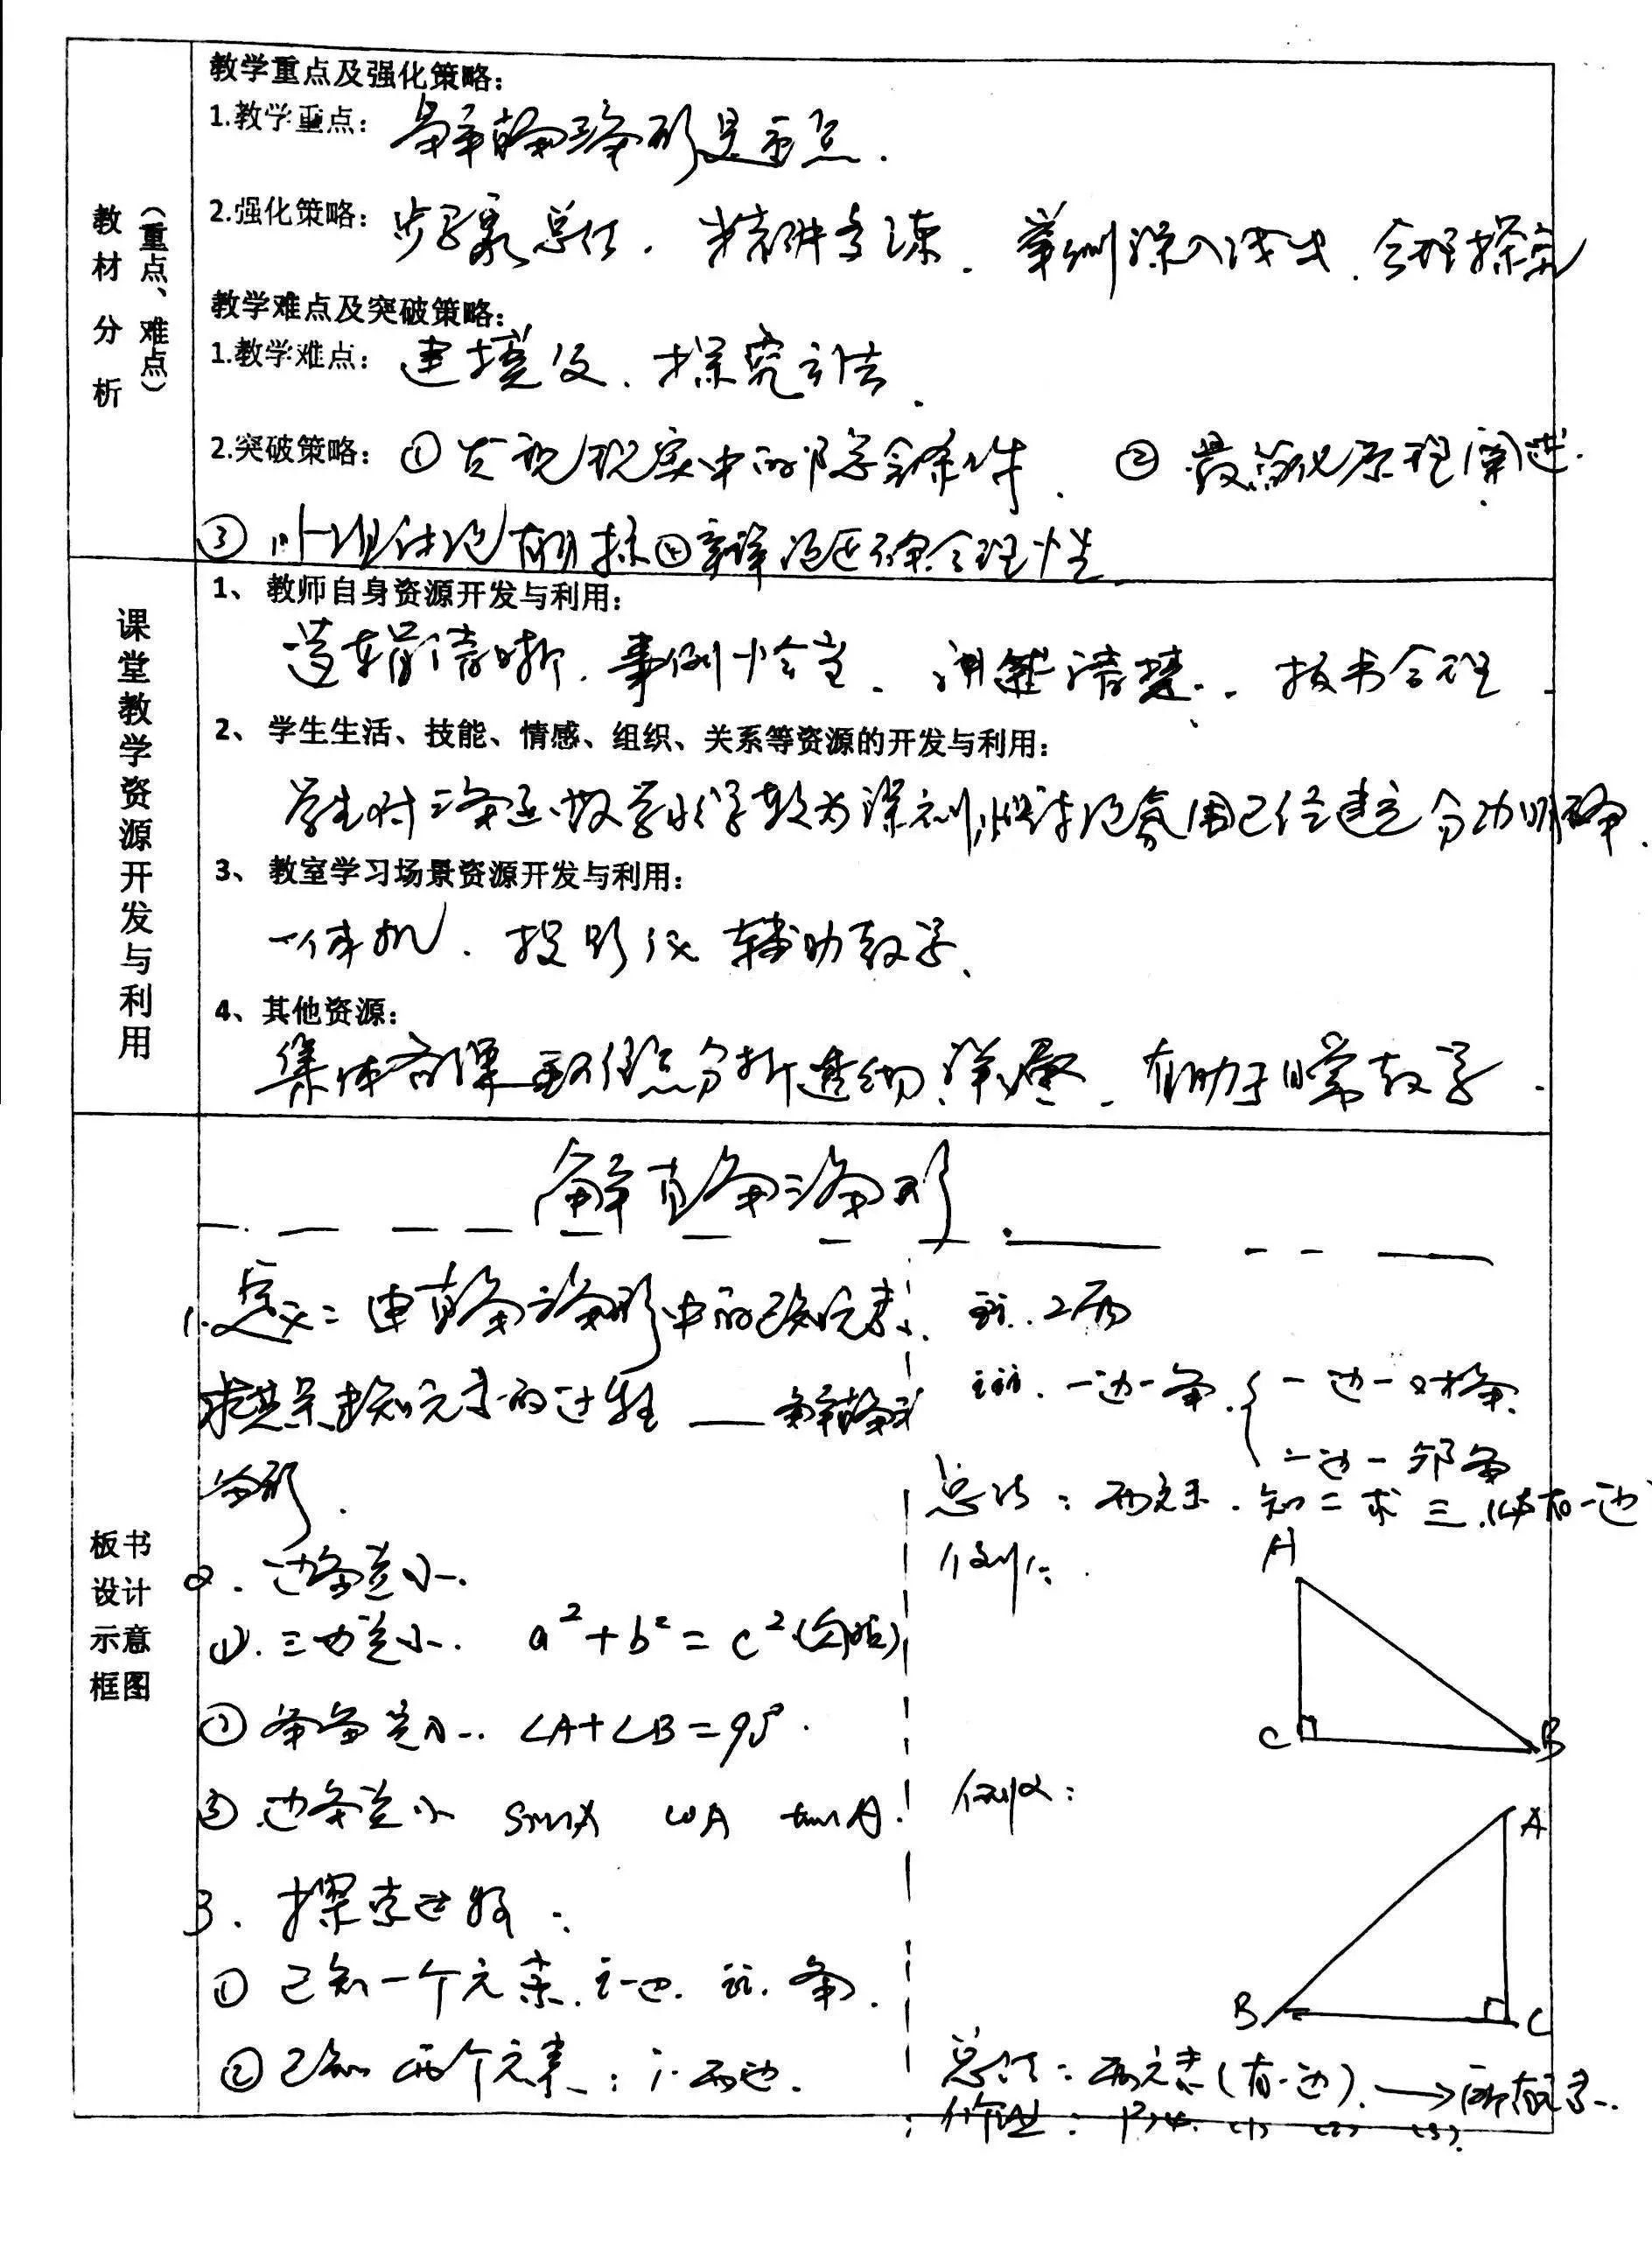 教材分析
（重点、难点）
教学重点及强化策略：
1.教学重点： 解直角三角形是重点.
2.强化策略： 步骤总结. 精讲多练. 举例深入浅出. 合理探究
教学难点及突破策略：
1.教学难点： 建模及. 探究方法.
2.突破策略： ① 发现现实中的隐含条件. ② 最简化原理
③ 小组讨论 ④ 合理性
课堂教学资源开发与利用
1、 教师自身资源开发与利用：
逻辑清晰. 事例恰当. 讲述清楚. 板书合理
2、 学生生活、技能、情感、组织、关系等资源的开发与利用：
学生对三角函数学习较为深刻, 讨论氛围已经建立 分工明确.
3、 教室学习场景资源开发与利用：
一体机. 投影仪 辅助教学.
4、 其他资源：
集体备课 重难点分析透彻. 详尽. 有助于日常教学.
板书设计示意框图
解直角三角形
1. 定义: 由直角三角形中的已知元素.
求其余未知元素的过程 —— 解直角三
角形.
2. 边角关系.
①. 三边关系. a²+b²=c² (勾股)
② 角角关系.. ∠A+∠B=90°.
③ 边角关系 sinA cosA tanA.
3. 探索过程:
① 已知一个元素. i 一边. ii. 角.
② 已知 两个元素: i. 两边.
ii. 2角
iii. 一边一角. { 一边一对角.
一边一邻角
总结: 两元素. 知二求三. 体有一边
例1:
A
C
B
例2:
A
B
C
总结: 两元素(有一边). → 所有元素..
作业: (1) (2) (3).